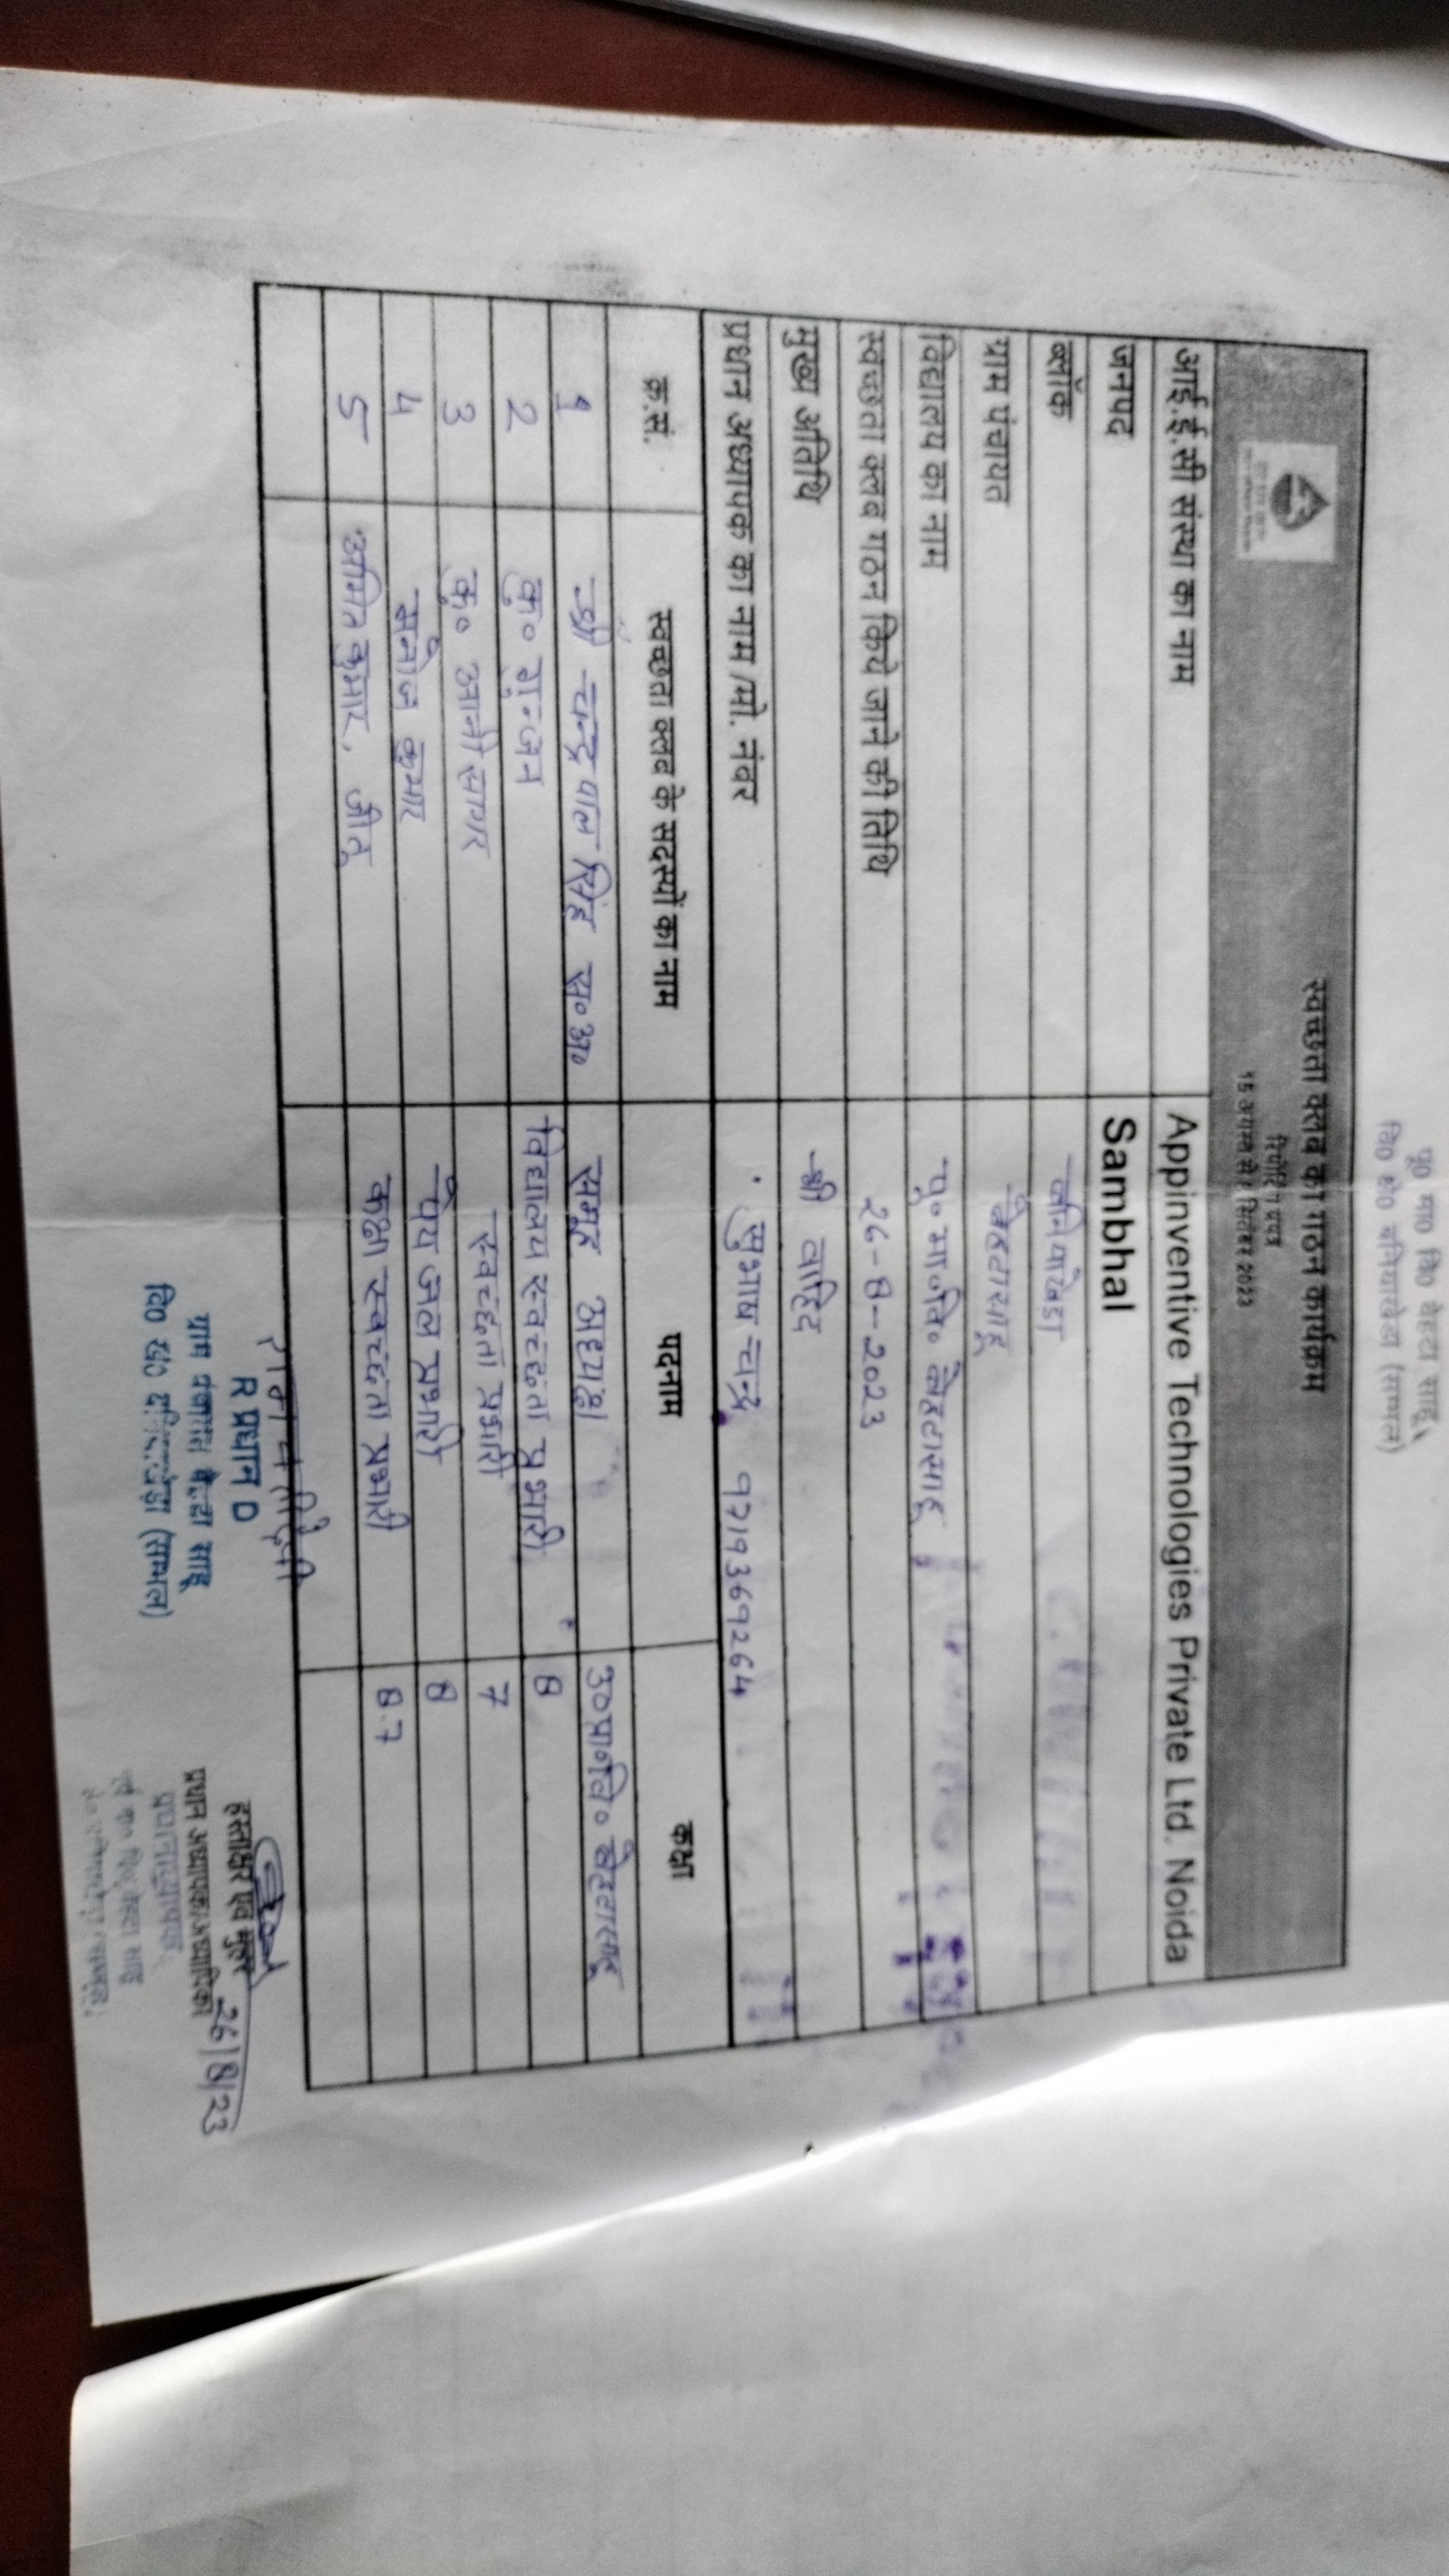 पू० मा० वि० बेहटा साहू
वि० क्षे० बनियाखेडा (सम्भल)
स्वच्छता क्लब का गठन कार्यक्रम
रिपोर्टिंग प्रपत्र
15 अगस्त से 2 सितंबर 2023
आई.ई.सी संस्था का नाम Appinventive Technologies Private Ltd. Noida
जनपद Sambhal
ब्लॉक बनियाखेडा
ग्राम पंचायत बेहटासाहू
विद्यालय का नाम पू० मा० वि० बेहटासाहू
स्वच्छता क्लब गठन किये जाने की तिथि 26-8-2023
मुख्य अतिथि श्री वाहिद
प्रधान अध्यापक का नाम /मो. नंबर सुभाष चन्द्र 9719369264
क्र.सं. स्वच्छता क्लब के सदस्यों का नाम पदनाम कक्षा
1 श्री चन्द्रपाल सिंह स०अ० समूह अध्यक्ष उ०प्रा०वि० बेहटासाहू
2 कु० गुन्जन विद्यालय स्वच्छता प्रभारी 8
3 कु० आनो सागर स्वच्छता प्रभारी 7
4 मनोज कुमार पेय जल प्रभारी 8
5 अमित कुमार, जीतू कक्षा स्वच्छता प्रभारी 8.7
R प्रधान D
ग्राम पंचायत बेहटा साहू
वि० खं० बनियाखेडा (सम्भल)
हस्ताक्षर एवं मुहर 26/8/23
प्रधान अध्यापक/अध्यापिका
प्रधानाध्यापक